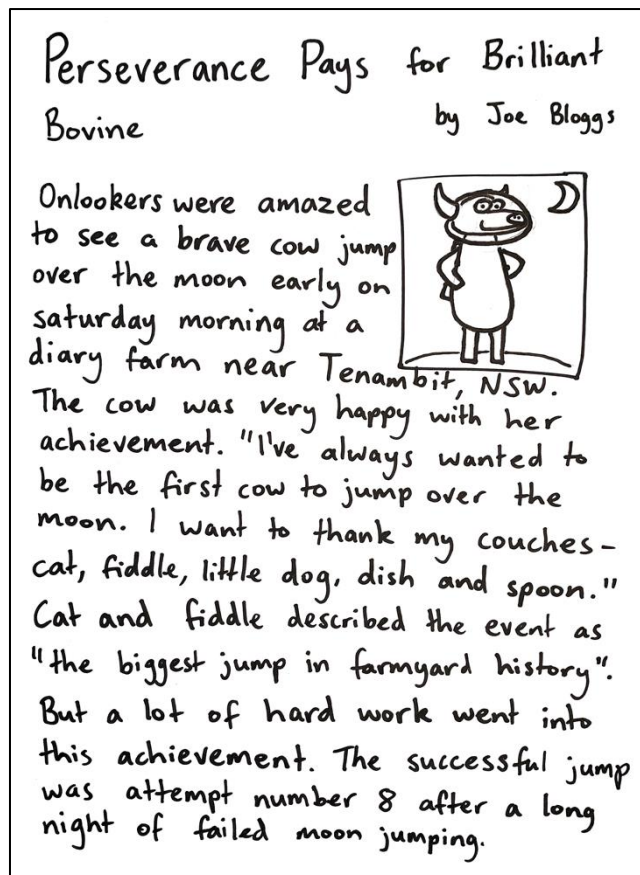 Perseverance Pays for Brilliant
Bovine by Joe Bloggs
Onlookers were amazed
to see a brave cow jump
over the moon early on
saturday morning at a
diary farm near Tenambit, NSW.
The cow was very happy with her
achievement. "I've always wanted to
be the first cow to jump over the
moon. I want to thank my couches-
cat, fiddle, little dog, dish and spoon."
Cat and fiddle described the event as
"the biggest jump in farmyard history".
But a lot of hard work went into
this achievement. The successful jump
was attempt number 8 after a long
night of failed moon jumping.